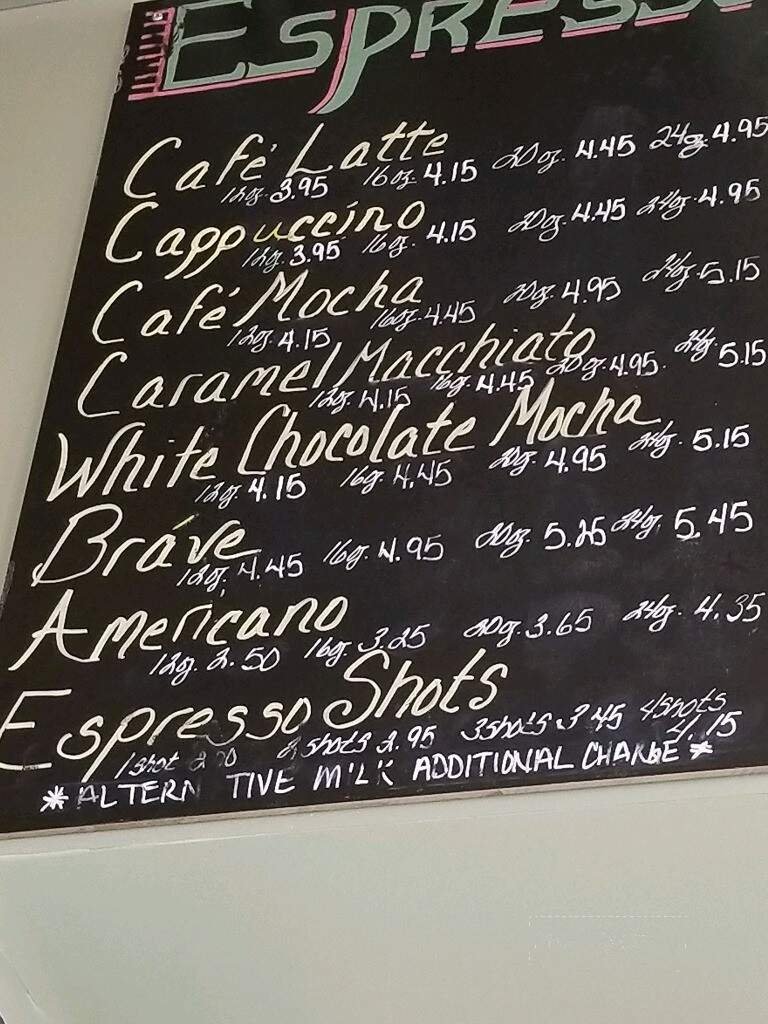 Espresso
Café Latte
12oz. 3.95 16oz. 4.15 20oz. 4.45 24oz. 4.95
Cappuccino
12oz. 3.95 16oz. 4.15 20oz. 4.45 24oz. 4.95
Café Mocha
12oz. 4.15 16oz. 4.45 20oz. 4.95 24oz. 5.15
Caramel Macchiato
12oz. 4.15 16oz. 4.45 20oz. 4.95. 24oz. 5.15
White Chocolate Mocha
12oz. 4.15 16oz. 4.45 20oz. 4.95 24oz. 5.15
Bráve
12oz. 4.45 16oz. 4.95 20oz. 5.25 24oz. 5.45
Americano
12oz. 2.50 16oz. 3.25 20oz. 3.65 24oz. 4.35
Espresso Shots
1shot 2 shots 2.95 3shots 3.45 4shots 4.15
*ALTERN TIVE MILK ADDITIONAL CHARGE*